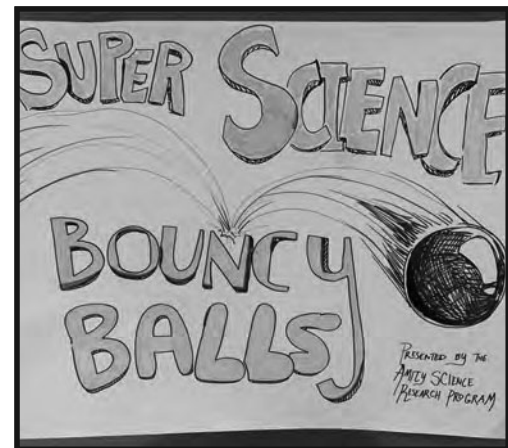 SUPER SCIENCE
BOUNCY
BALLS
PRESENTED BY THE
AMITY SCIENCE
RESEARCH PROGRAM